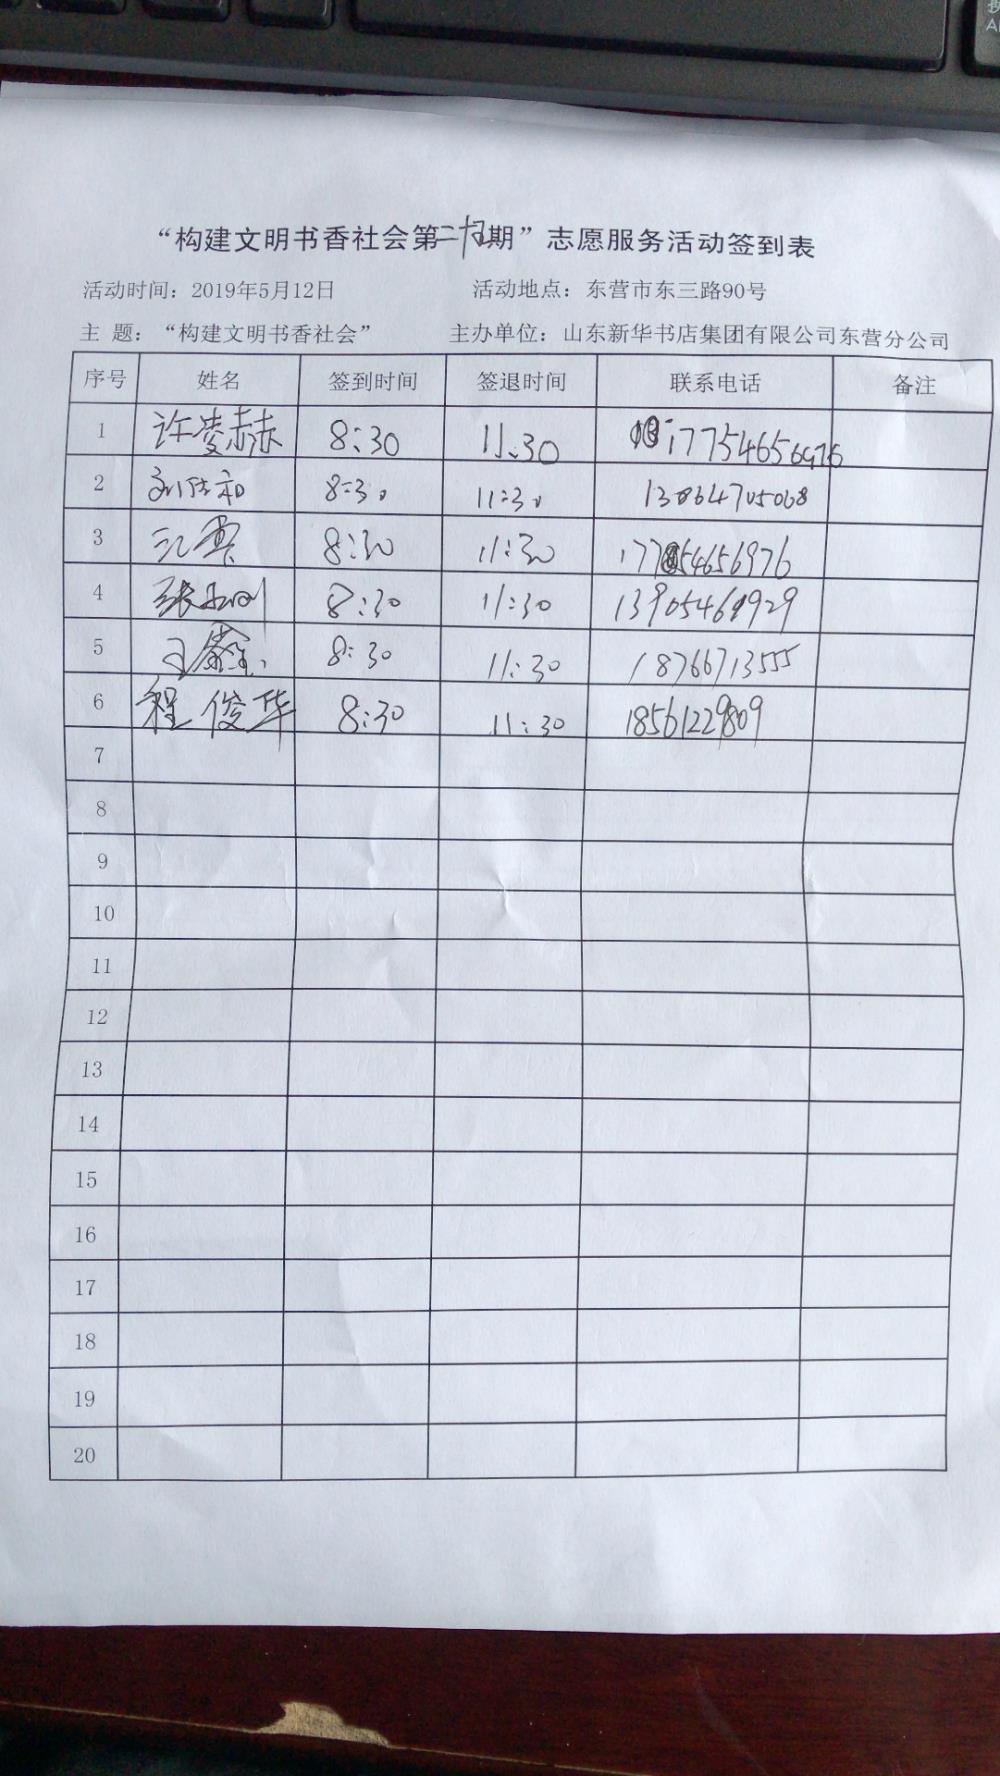 “构建文明书香社会第二十五期”志愿服务活动签到表
活动时间：2019年5月12日 活动地点：东营市东三路90号
主 题：“构建文明书香社会” 主办单位：山东新华书店集团有限公司东营分公司
序号 姓名 签到时间 签退时间 联系电话 备注
1 许凌赫 8:30 11:30 17754656976
2 8:30 11:30 13864705068
3 8:30 11:30 17754656976
4 8:30 11:30 13905461929
5 8:30 11:30 18766713555
6 程俊华 8:30 11:30 18561229809
7
8
9
10
11
12
13
14
15
16
17
18
19
20